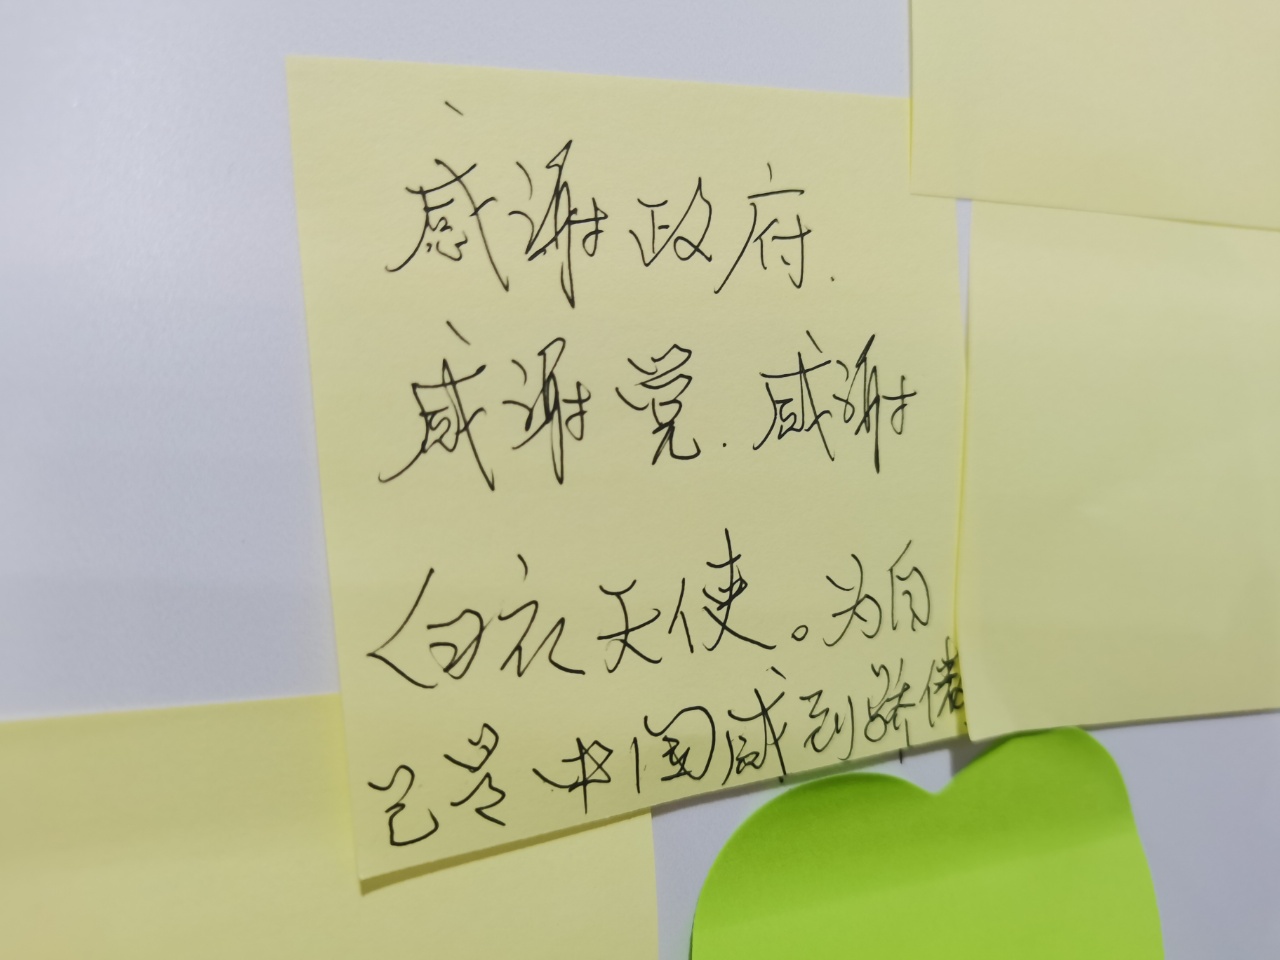 感谢政府.
感谢党.感谢
白衣天使。为自
己是中国感到骄傲